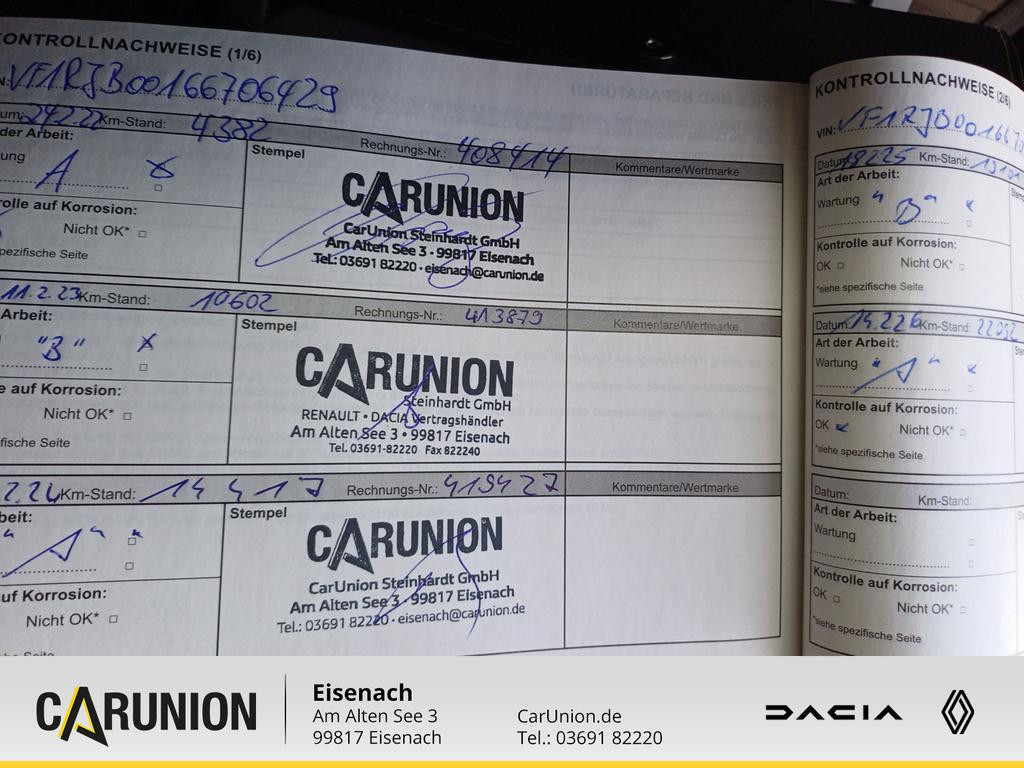 KONTROLLNACHWEISE (1/6)
VF1RJB00166706429
24.2.22 Km-Stand: 4382
der Arbeit:
Rechnungs-Nr.: 408414
Kommentare/Wertmarke
A
Stempel
CARUNION
CarUnion Steinhardt GmbH
Am Alten See 3 · 99817 Eisenach
Tel.: 03691 82220 · eisenach@carunion.de
rolle auf Korrosion:
Nicht OK*
pezifische Seite
11.2.23 Km-Stand: 10602
Rechnungs-Nr.: 413879
Kommentare/Wertmarke
Arbeit:
"B"
Stempel
CARUNION
Steinhardt GmbH
RENAULT • DACIA Vertragshändler
Am Alten See 3 • 99817 Eisenach
Tel. 03691-82220 Fax 822240
e auf Korrosion:
Nicht OK*
ifische Seite
2.24 Km-Stand: 14417
Rechnungs-Nr.: 419427
Kommentare/Wertmarke
beit:
"A"
Stempel
CARUNION
CarUnion Steinhardt GmbH
Am Alten See 3 · 99817 Eisenach
Tel.: 03691 82220 · eisenach@carunion.de
uf Korrosion:
Nicht OK*
KONTROLLNACHWEISE (2/6)
VIN: VF1RJB00166
Datum: Km-Stand:
Art der Arbeit:
Wartung "B"
Kontrolle auf Korrosion:
OK Nicht OK*
*siehe spezifische Seite
Datum: Km-Stand:
Art der Arbeit:
Wartung "A"
Kontrolle auf Korrosion:
OK Nicht OK*
*siehe spezifische Seite
Datum: Km-Stand:
Art der Arbeit:
Wartung
Kontrolle auf Korrosion:
OK Nicht OK*
*siehe spezifische Seite
CARUNION
Eisenach
Am Alten See 3
99817 Eisenach
CarUnion.de
Tel.: 03691 82220
DACIA